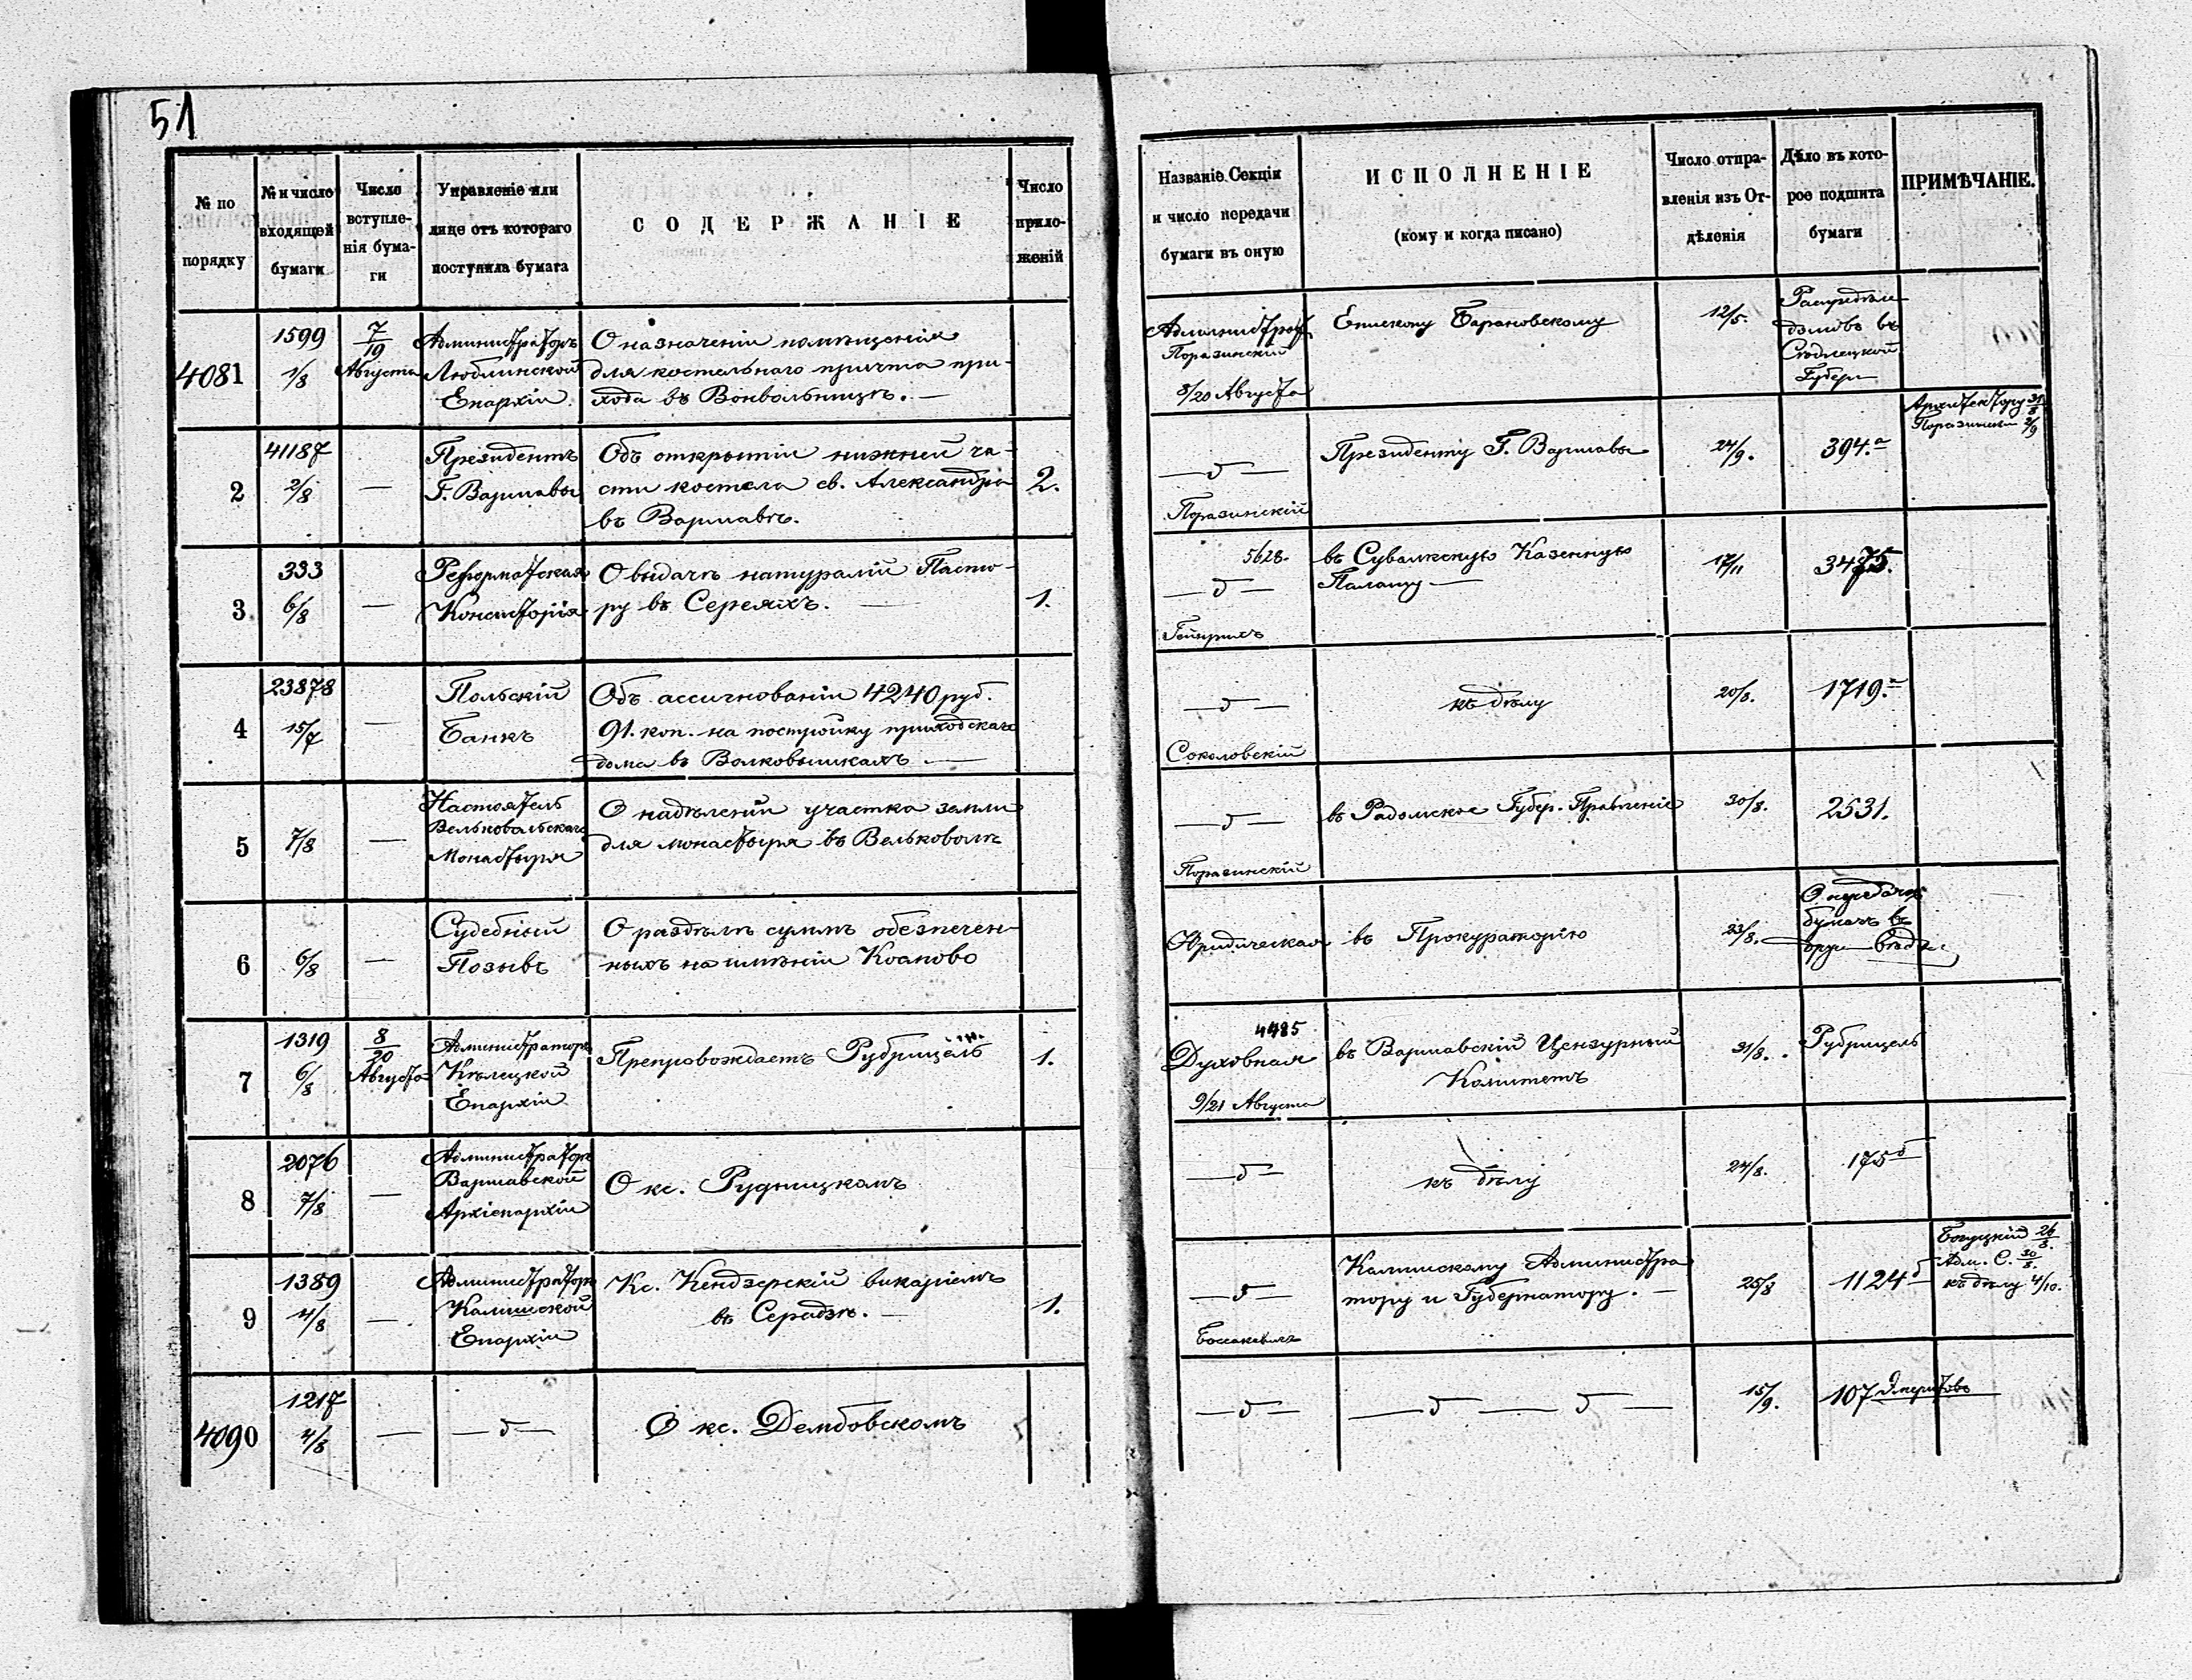 51
№ по порядку
№ и число входящей бумаги
Число вступленія бумаги
Управленіе или лице отъ котораго поступила бумага
СОДЕРЖАНІЕ
Число приложеній
Названіе Секціи и число передачи бумаги въ оную
ИСПОЛНЕНІЕ
(кому и когда писано)
Число отправленія изъ Отдѣленія
Дѣло въ которое подшита бумаги
ПРИМѢЧАНІЕ.
4081
1599
1/8
7/19
Августа
Администраторъ
Люблинской
Епархіи
О назначеніи помѣщенія
для костельнаго причта при-
хода въ Вонвольницѣ. —
Администрат
Поразинскій
8/20 Августа
Епископу Барановскому
12/5.
домовъ въ
Сѣдлецкой
Губерн
2
41187
2/8
—
Президентъ
Г. Варшавы
Объ открытіи нижней ча-
сти костела св. Александра
въ Варшавѣ.
2.
— д —
Поразинскій
Президенту Г. Варшавы
24/9.
394.а
Архитектору 31/8
Поразинскі 2/9
3
333
6/8
—
Реформатская
Консисторія
О выдачѣ натуралій Пасто-
ру въ Сереяхъ. —
1.
5628.
— д —
въ Сувалкскую Казенную
Палату —
17/11
3475.
4
23878
15/7
—
Польскій
Банкъ
Объ ассигнованіи 4240 руб.
91. коп. на постройку приходскаго
дома въ Волковышкахъ —
— д —
Соколовскій
къ дѣлу
20/8.
1719.а
5
7/8
—
Настоятель
Вельковольскаго
Монастыря
О надѣленіи участка земли
для монастыря въ Вельковолѣ
— д —
Поразинскій
въ Радомское Губер. Правленіе
30/8.
2531.
6
6/8
—
Судебный
Позывъ
О раздѣлѣ суммъ обезпечен-
ныхъ на имѣніи Коаново
Юридическая
въ Прокураторію
23/8.
О передачѣ
бумагъ въ
друг вѣд
7
1319
6/8
8/20
Августа
Администраторъ
Кѣлецкой
Епархіи
Препровождаетъ Рубрицель
1.
4485
Духовная
9/21 Августа
въ Варшавскій Цензурный
Комитетъ
31/8.
Рубрицель
8
2076
7/8
—
Администраторъ
Варшавской
Архіепархіи
О кс. Рудницкомъ
— д —
къ дѣлу
24/8.
175 б
9
1389
4/8
—
Администраторъ
Калишской
Епархіи
Кс. Кендзерскій викаріемъ
въ Серадзѣ. —
1.
— д —
Калишскому Администра
тору и Губернатору. —
25/8
1124 б
Богуцкій 26/8.
Адм. С. 30/8.
къ дѣлу 4/10.
4090
1217
4/8
—
— д —
О кс. Дембовскомъ
— д —
— д — д —
15/9.
107 Эмеритовъ